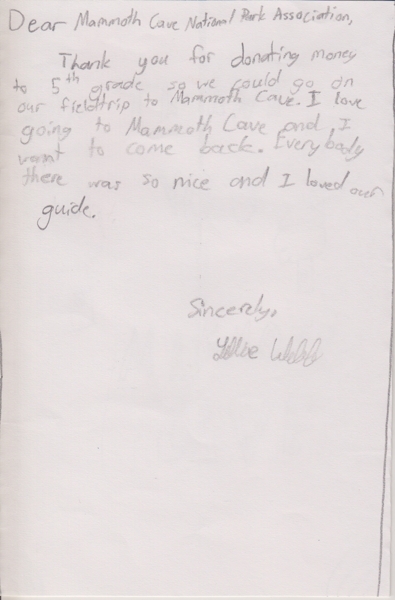 Dear Mammoth Cave National Park Association,
Thank you for donating money
to 5th grade so we could go on
our fieldtrip to Mammoth Cave. I love
going to Mammoth Cave and I
want to come back. Everybody
there was so nice and I loved our
guide.
Sincerely,